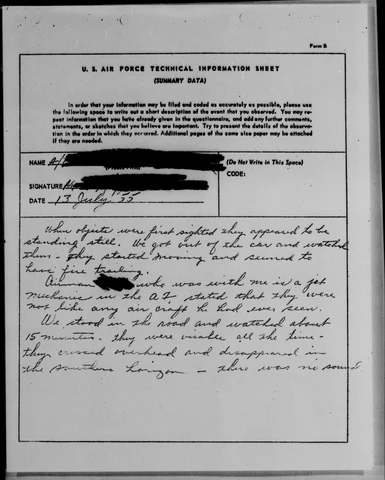 Form B
U. S. AIR FORCE TECHNICAL INFORMATION SHEET
(SUMMARY DATA)
In order that your information may be filed and coded as accurately as possible, please use
the following space to write out a short description of the event that you observed. You may re-
peat information that you have already given in the questionnaire, and add any further comments,
statements, or sketches that you believe are important. Try to present the details of the observa-
tion in the order in which they occurred. Additional pages of the same size paper may be attached
if they are needed.
NAME
(Do Not Write in This Space)
CODE:
SIGNATURE
DATE 13 July 55
When objects were first sighted they appeared to be
standing still. We got out of the car and watched
them. They started moving and seemed to
have fire trailing.
Airman who was with me is a jet
mechanic in the A.F. stated that they were
not like any air craft he had ever seen.
We stood in the road and watched about
15 minutes. they were visible all the time -
they crossed overhead and disappeared in
the southern horizon - there was no sound